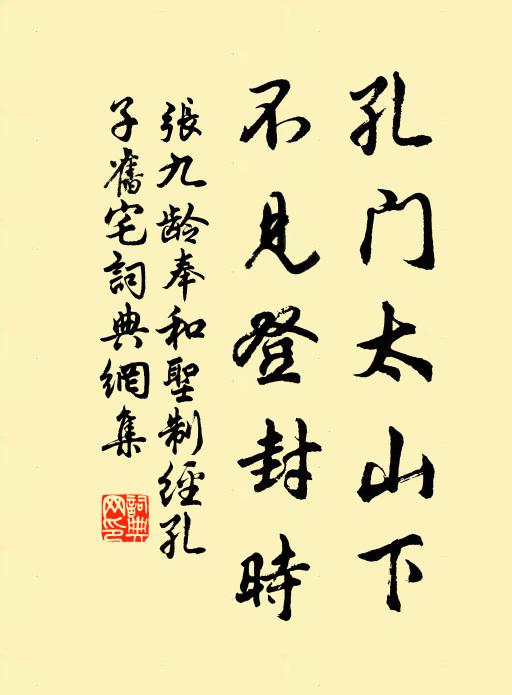 孔门太山下
不見登封時
張九龄奉和聖制經孔
子舊宅詞典網集
詞典
网印